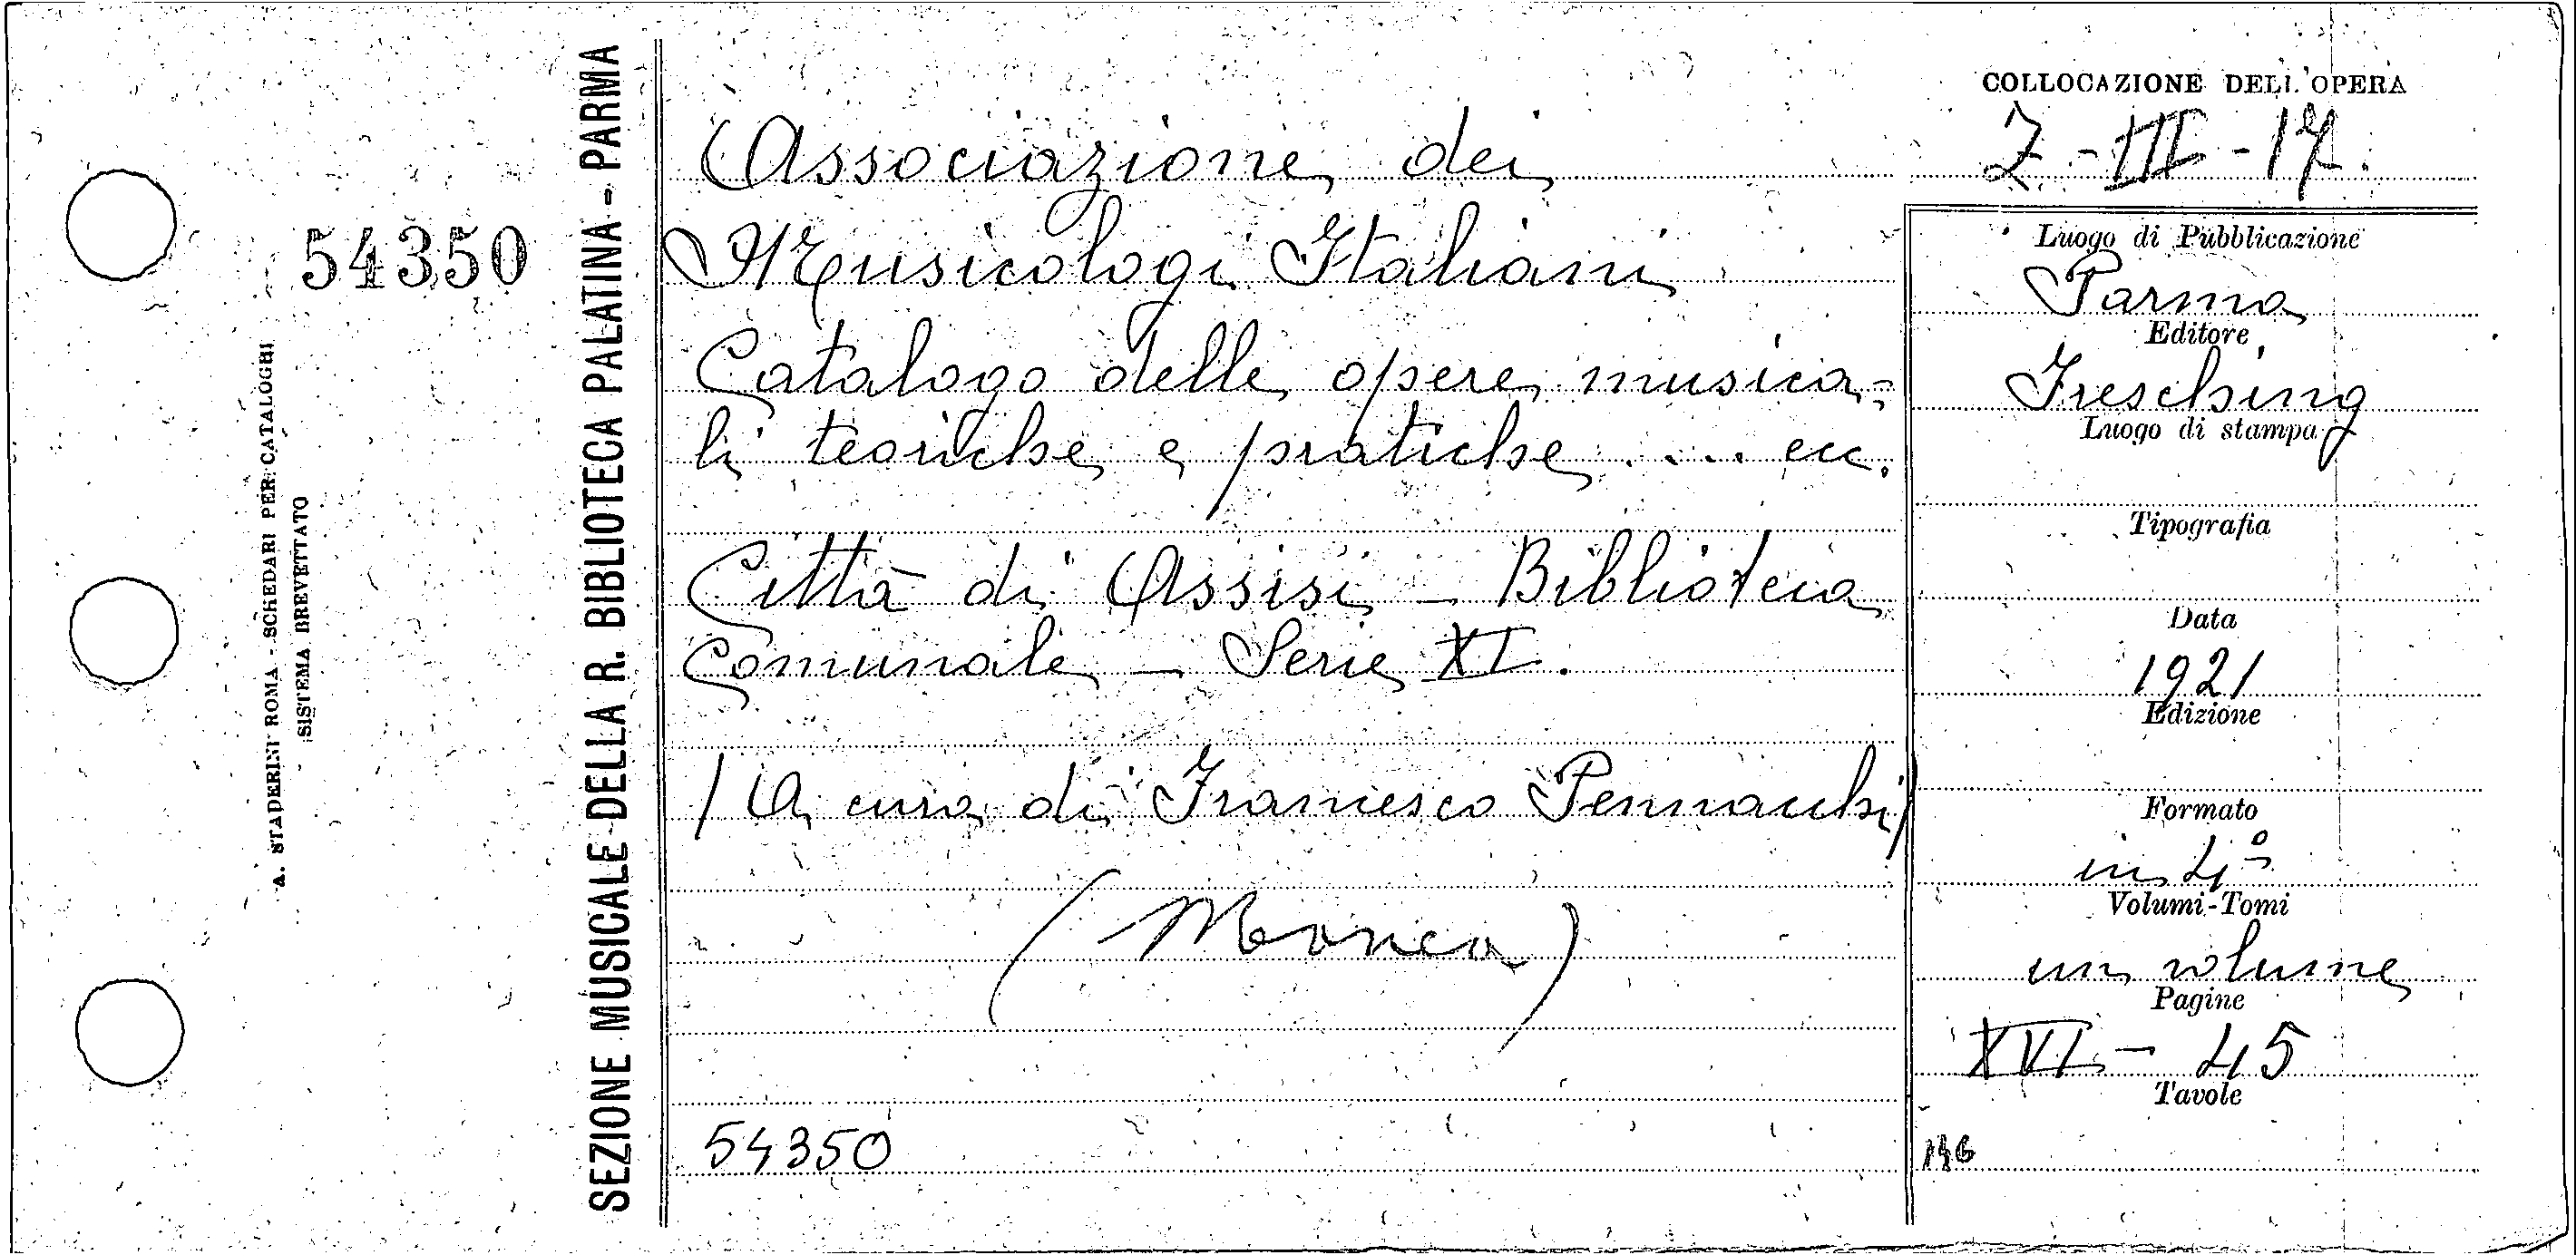 54350
A. STADERINI ROMA - SCHEDARI PER CATALOGHI
SISTEMA BREVETTATO
SEZIONE MUSICALE DELLA R. BIBLIOTECA PALATINA - PARMA
Associazione dei
Musicologi Italiani
Catalogo delle opere musica=
li teoriche e pratiche .... ecc.
Città di Assisi - Biblioteca
Comunale - Serie XI.
(A cura di Francesco Pennacchi)
54350
COLLOCAZIONE DELL'OPERA
Z-III-17.
Luogo di Pubblicazione
Parma
Editore
Fresching
Luogo di stampa
Tipografia
Data
1921
Edizione
Formato
in 4°
Volumi-Tomi
un volume
Pagine
XVI - 45
Tavole
146